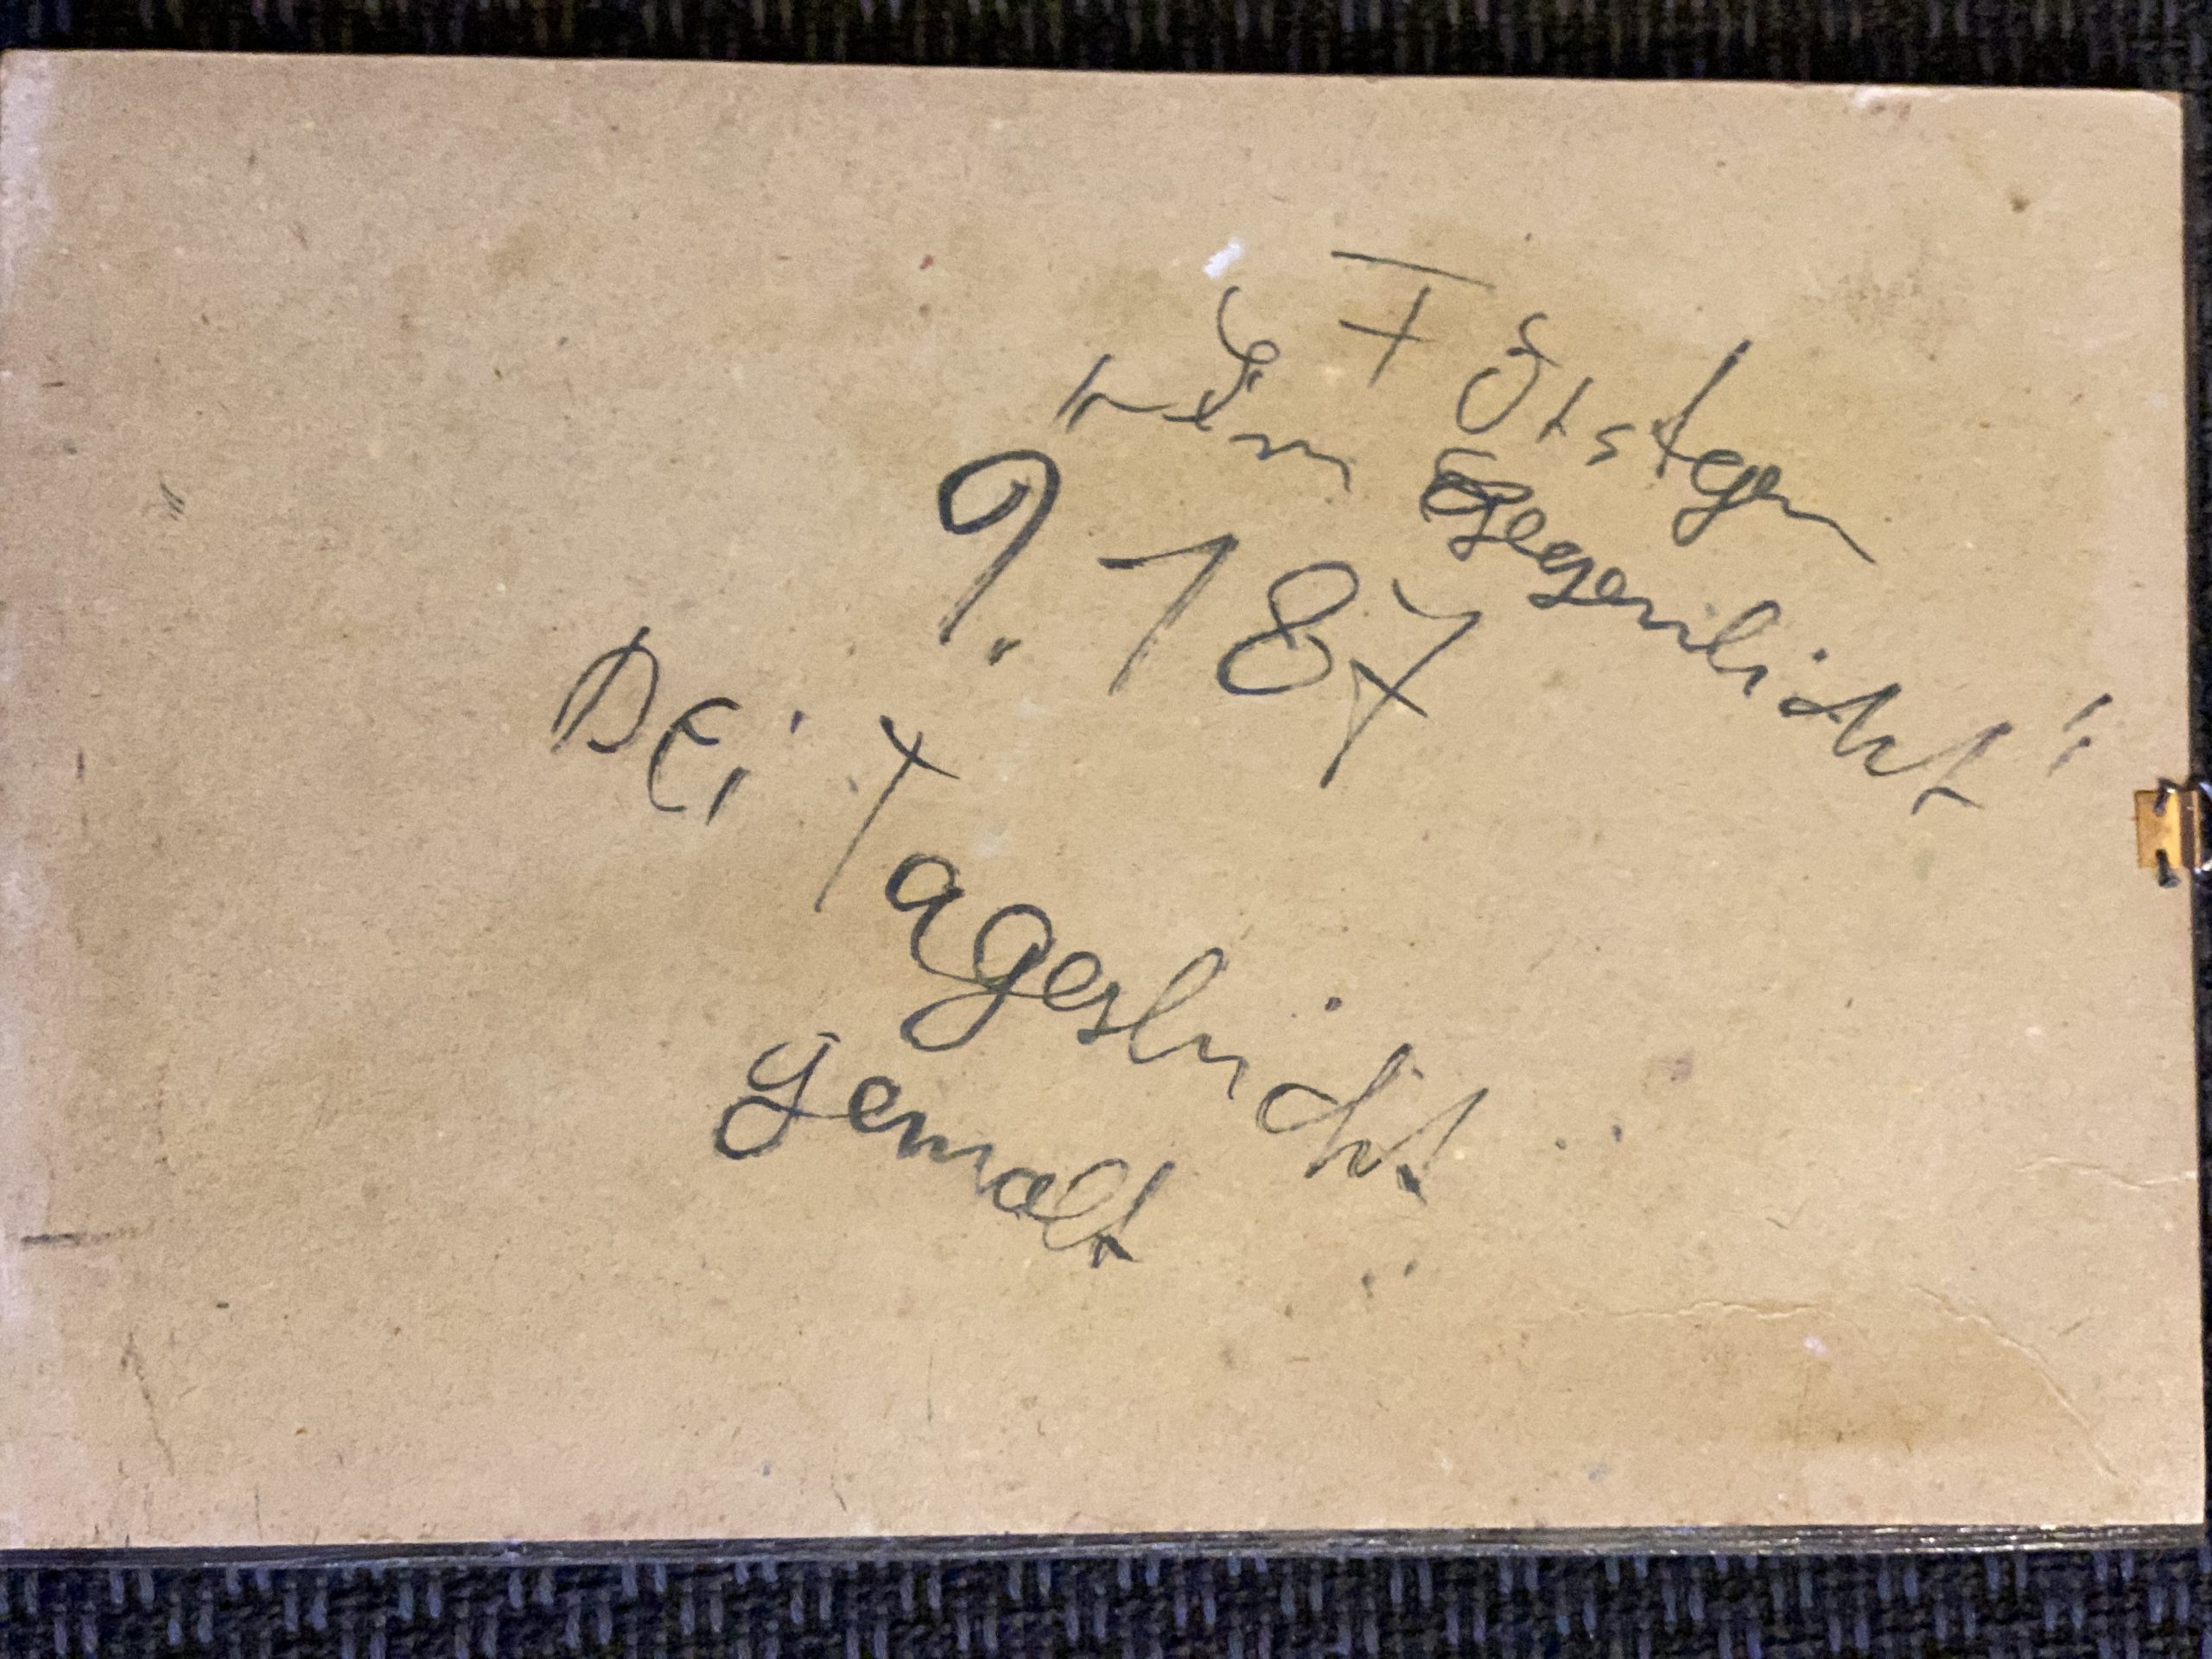 „Im Gegenlicht"
9. 187
Bei Tageslicht
gemalt